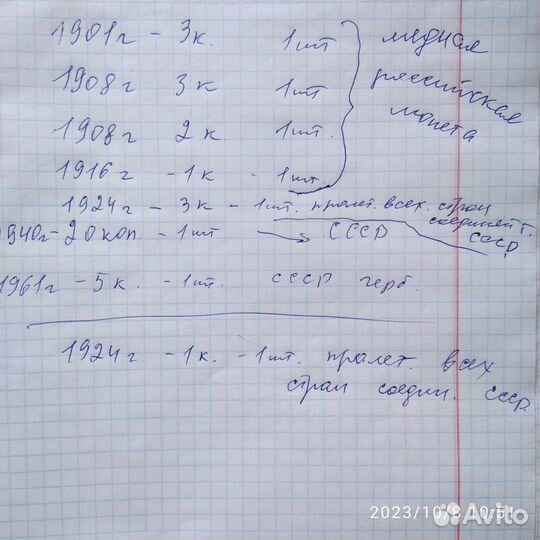 1901г - 3к. 1шт медная
1908г 3к 1шт российская
1908г 2к. 1шт. монета
1916г - 1к - 1шт.
1924г - 3к - 1шт. пролет. всех. стран
соединейт.
СССР
940г - 20коп. - 1шт СССР
1961г - 5к. - 1шт. СССР герб.
1924г - 1к. - 1шт. пролет. всех
стран соедин. СССР
2023/10/8 10:51
Avito